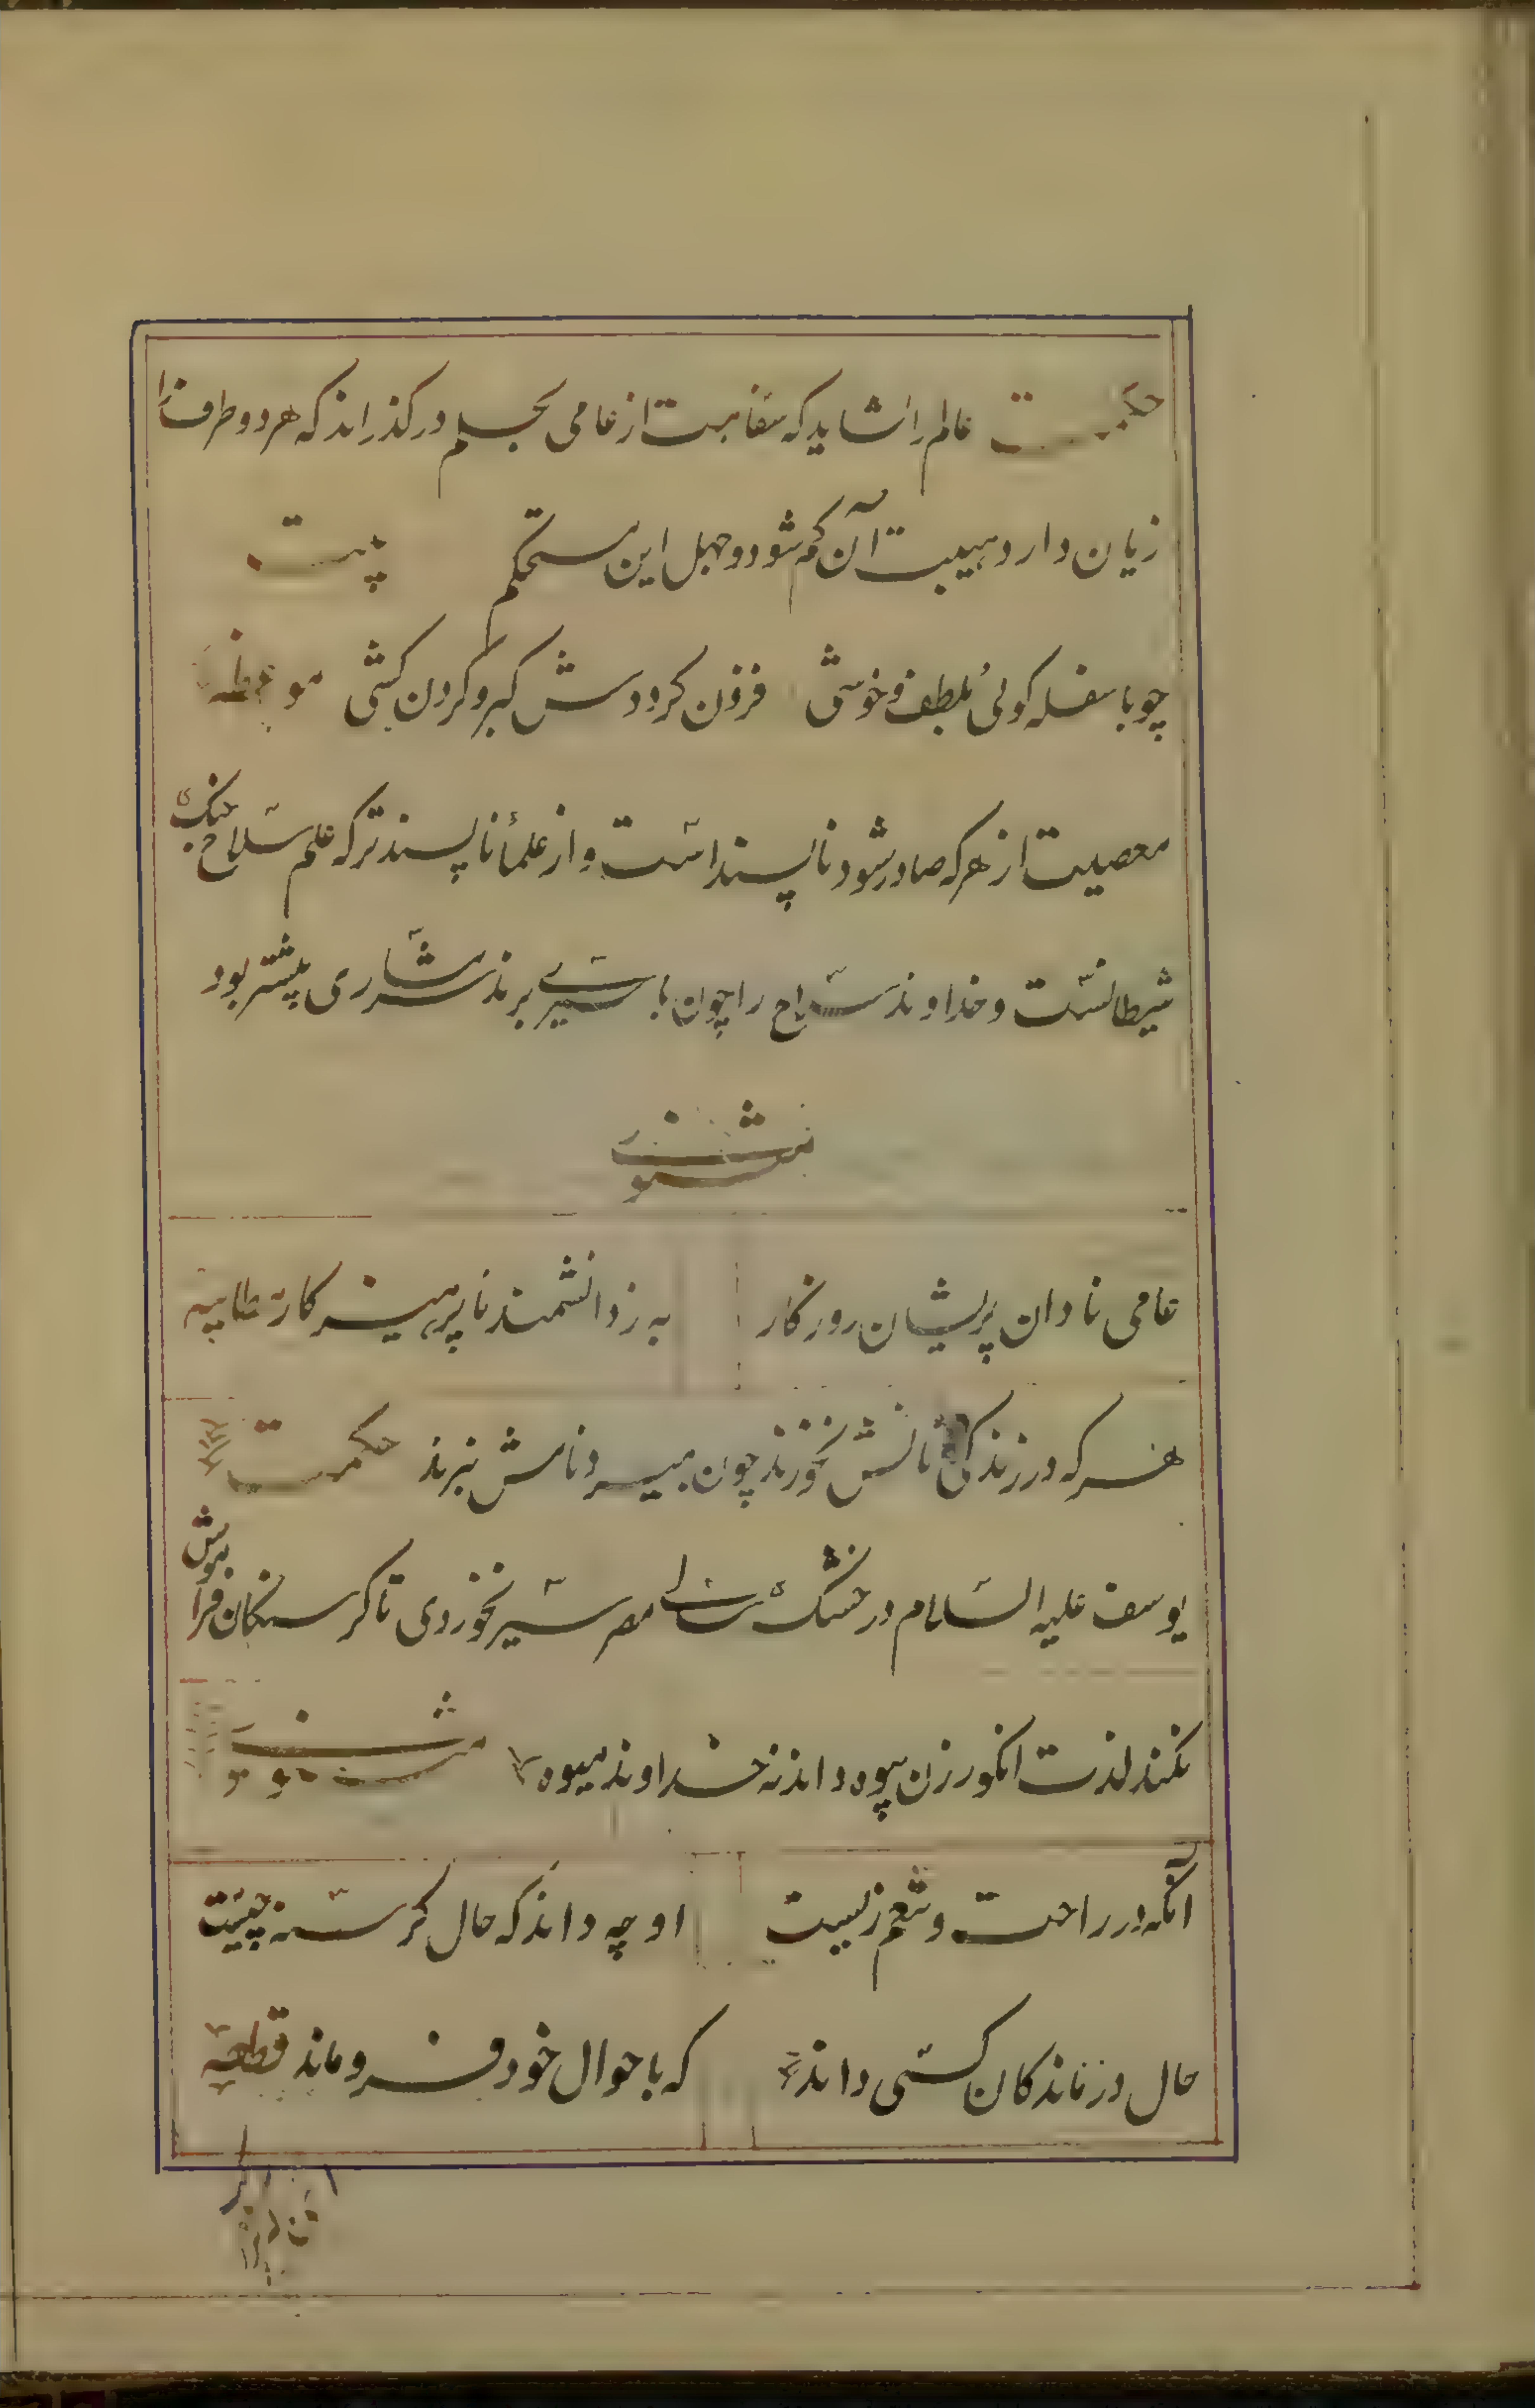 حکمت عالم را نشاید که سفاهت از عامی بحلم در گذراند که هر دو طرف را
زیان دارد هیبت آن کم شود و جهل این مستحکم بیت
چو با سفله کوئی بلطف و خوشی فزون کرددش کبر و کردن کشی موعظه
معصیت از هر که صادر شود ناپسند است و از علما ناپسندتر که علم سلاح جنک
شیطانست و خداوند سلاح را چون باسیری برند شرمساری بیشتر بود
مثنوی
عامی نادان پریشان روزکار به ز دانشمند ناپرهیزکار
هر که در زندکی نانش نخورند چون بمیرد نامش نبرند حکمت
یوسف علیه السلام در خشک سالی مصر سیر نخوردی تا کرسنکان فراموش
نکند لذت انکور زن بیوه داند نه خداوند میوه مثنوی
آنکه در راحت و تنعم زیست او چه داند که حال کرسنه چیست
حال درماندکان کسی داند که باحوال خود فروماند قطعه